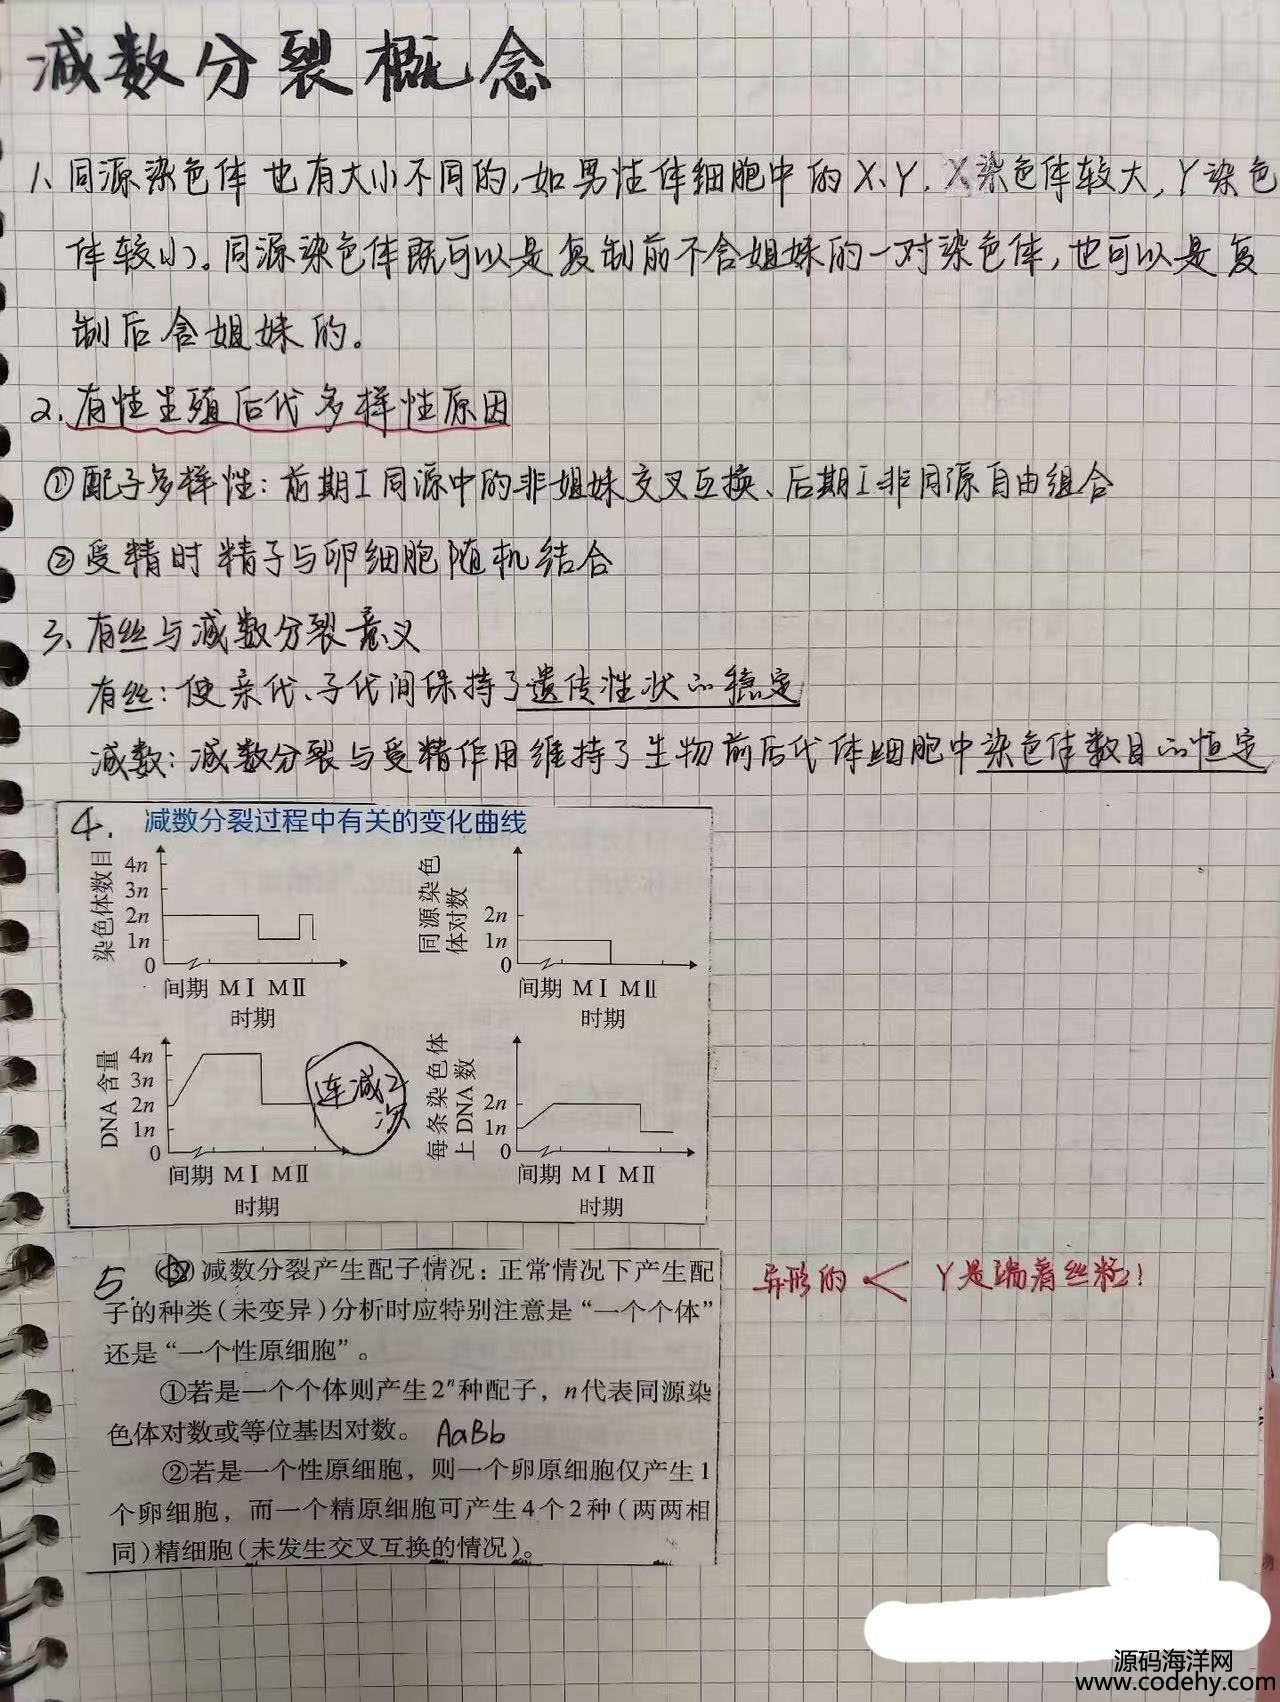 减数分裂概念
1、同源染色体也有大小不同的,如男性体细胞中的X、Y,X染色体较大,Y染色
体较小。同源染色体既可以是复制前不含姐妹的一对染色体,也可以是复
制后含姐妹的。
2、有性生殖后代多样性原因
①配子多样性:前期I同源中的非姐妹交叉互换、后期I非同源自由组合
②受精时精子与卵细胞随机结合
3、有丝与减数分裂意义
有丝:使亲代、子代间保持了遗传性状的稳定
减数:减数分裂与受精作用维持了生物前后代体细胞中染色体数目的恒定
4. 减数分裂过程中有关的变化曲线
染色体数目
4n
3n
2n
1n
0
间期 MⅠ MⅡ
时期
同源染色
体对数
2n
1n
0
间期 MⅠ MⅡ
时期
DNA含量
4n
3n
2n
1n
0
间期 MⅠ MⅡ
时期
连减2
次
每条染色体
上DNA数
2n
1n
0
间期 MⅠ MⅡ
时期
5. 减数分裂产生配子情况:正常情况下产生配
子的种类(未变异)分析时应特别注意是“一个个体”
还是“一个性原细胞”。
①若是一个个体则产生2ⁿ种配子,n代表同源染
色体对数或等位基因对数。 AaBb
②若是一个性原细胞,则一个卵原细胞仅产生1
个卵细胞,而一个精原细胞可产生4个2种(两两相
同)精细胞(未发生交叉互换的情况)。
异形的 < Y是端着丝粒!
源码海洋网
www.codehy.com